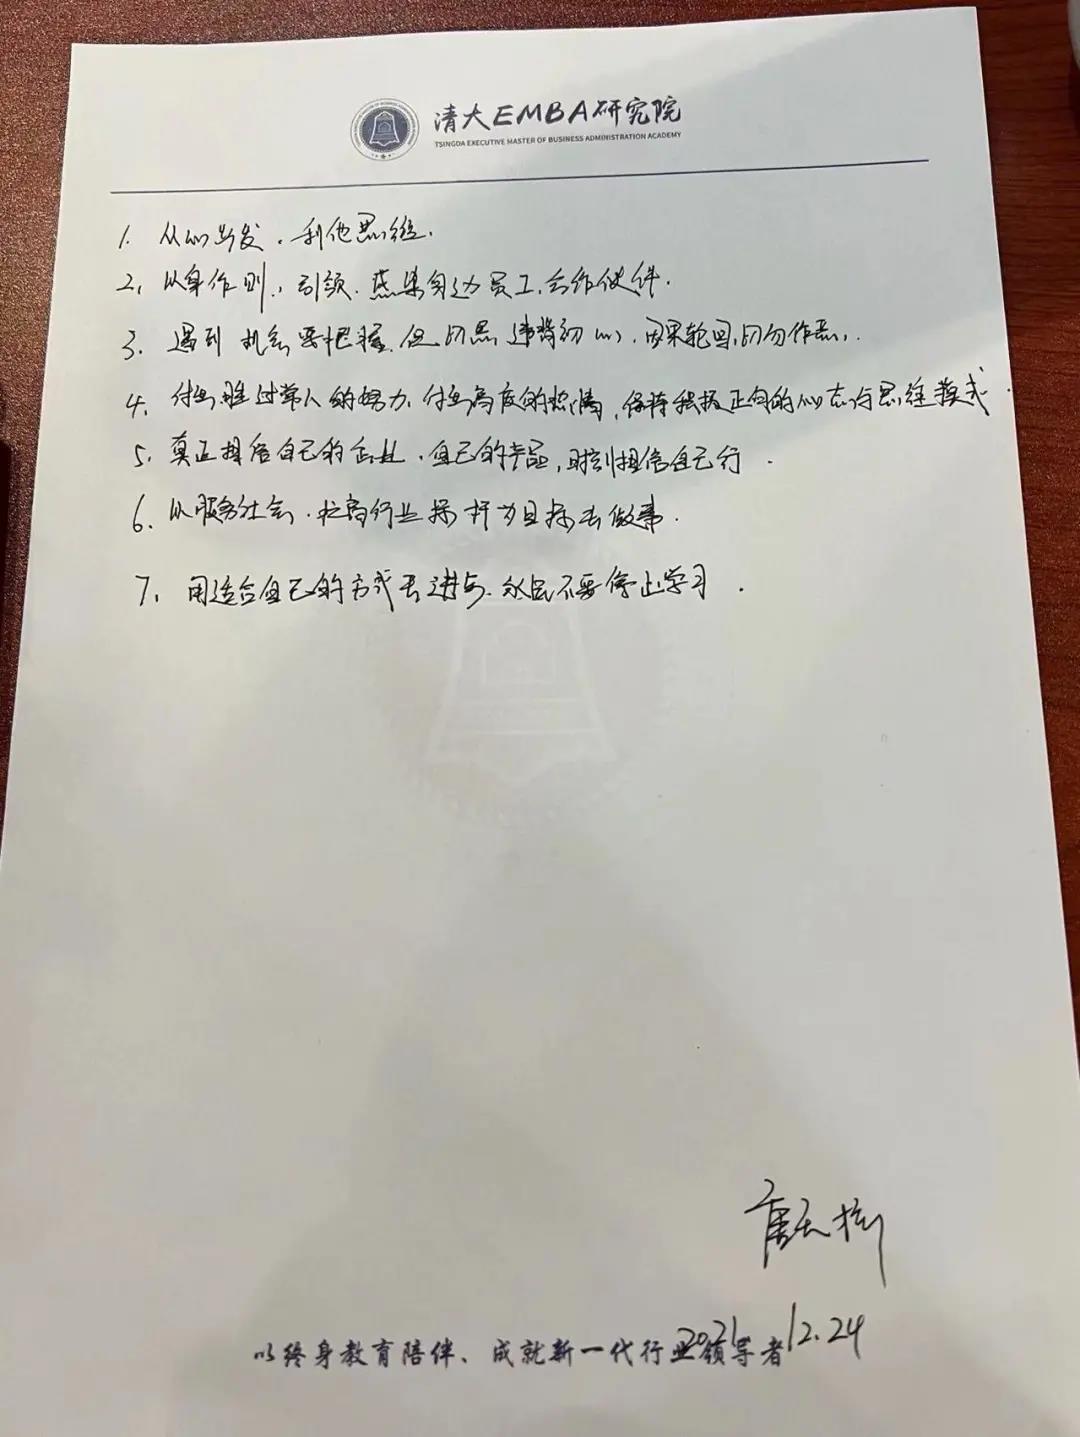 清大EMBA研究院
TSINGDA EXECUTIVE MASTER OF BUSINESS ADMINISTRATION ACADEMY
1. 从心出发，利他思维.
2, 以身作则，引领.感染身边员工,合作伙伴.
3. 遇到机会要把握.但切忌违背初心,因果轮回,切勿作恶.
4, 付出胜过常人的努力,付出高度的热情,保持积极正向的心态与思维模式.
5, 真正相信自己的企业,自己的产品,时刻相信自己行.
6, 以服务社会,拉高行业标杆为目标去做事.
7, 用适合自己的方式去进步.永远不要停止学习.
2021 12.24
以终身教育陪伴、成就新一代行业领导者